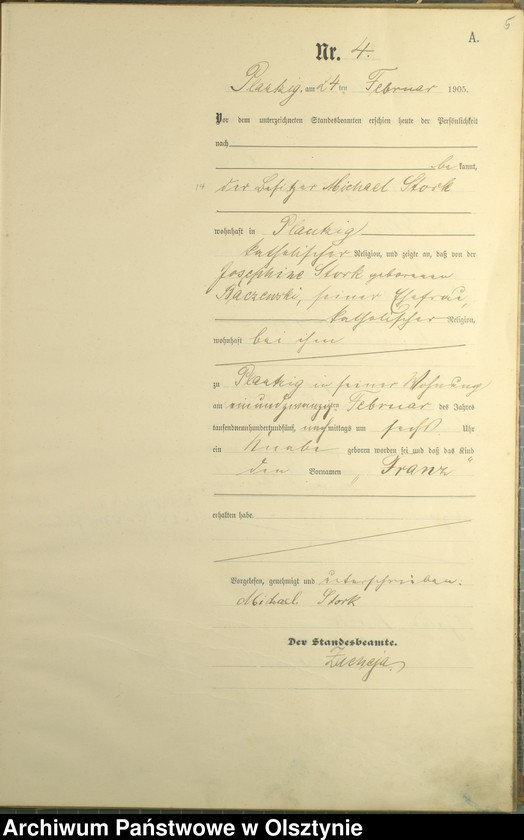 5
A.
Nr. 4.
Plautzig, am 24 ten Februar 1905.
Vor dem unterzeichneten Standesbeamten erschien heute der Persönlichkeit
nach
be kannt,
14 der Besitzer Michael Stork
wohnhaft in Plautzig
katholischer Religion, und zeigte an, daß von der
Josephine Stork geborenen
Raczewski, seiner Ehefrau,
katholischer Religion,
wohnhaft bei ihm
zu Plautzig in seiner Wohnung
am einundzwanzigsten Februar des Jahres
tausendneunhundertfünf, nachmittags um sechs Uhr
ein Knabe geboren worden sei und daß das Kind
den Vornamen „Franz“
erhalten habe.
Vorgelesen, genehmigt und unterschrieben:
Michael Stork
Der Standesbeamte.
Archiwum Państwowe w Olsztynie